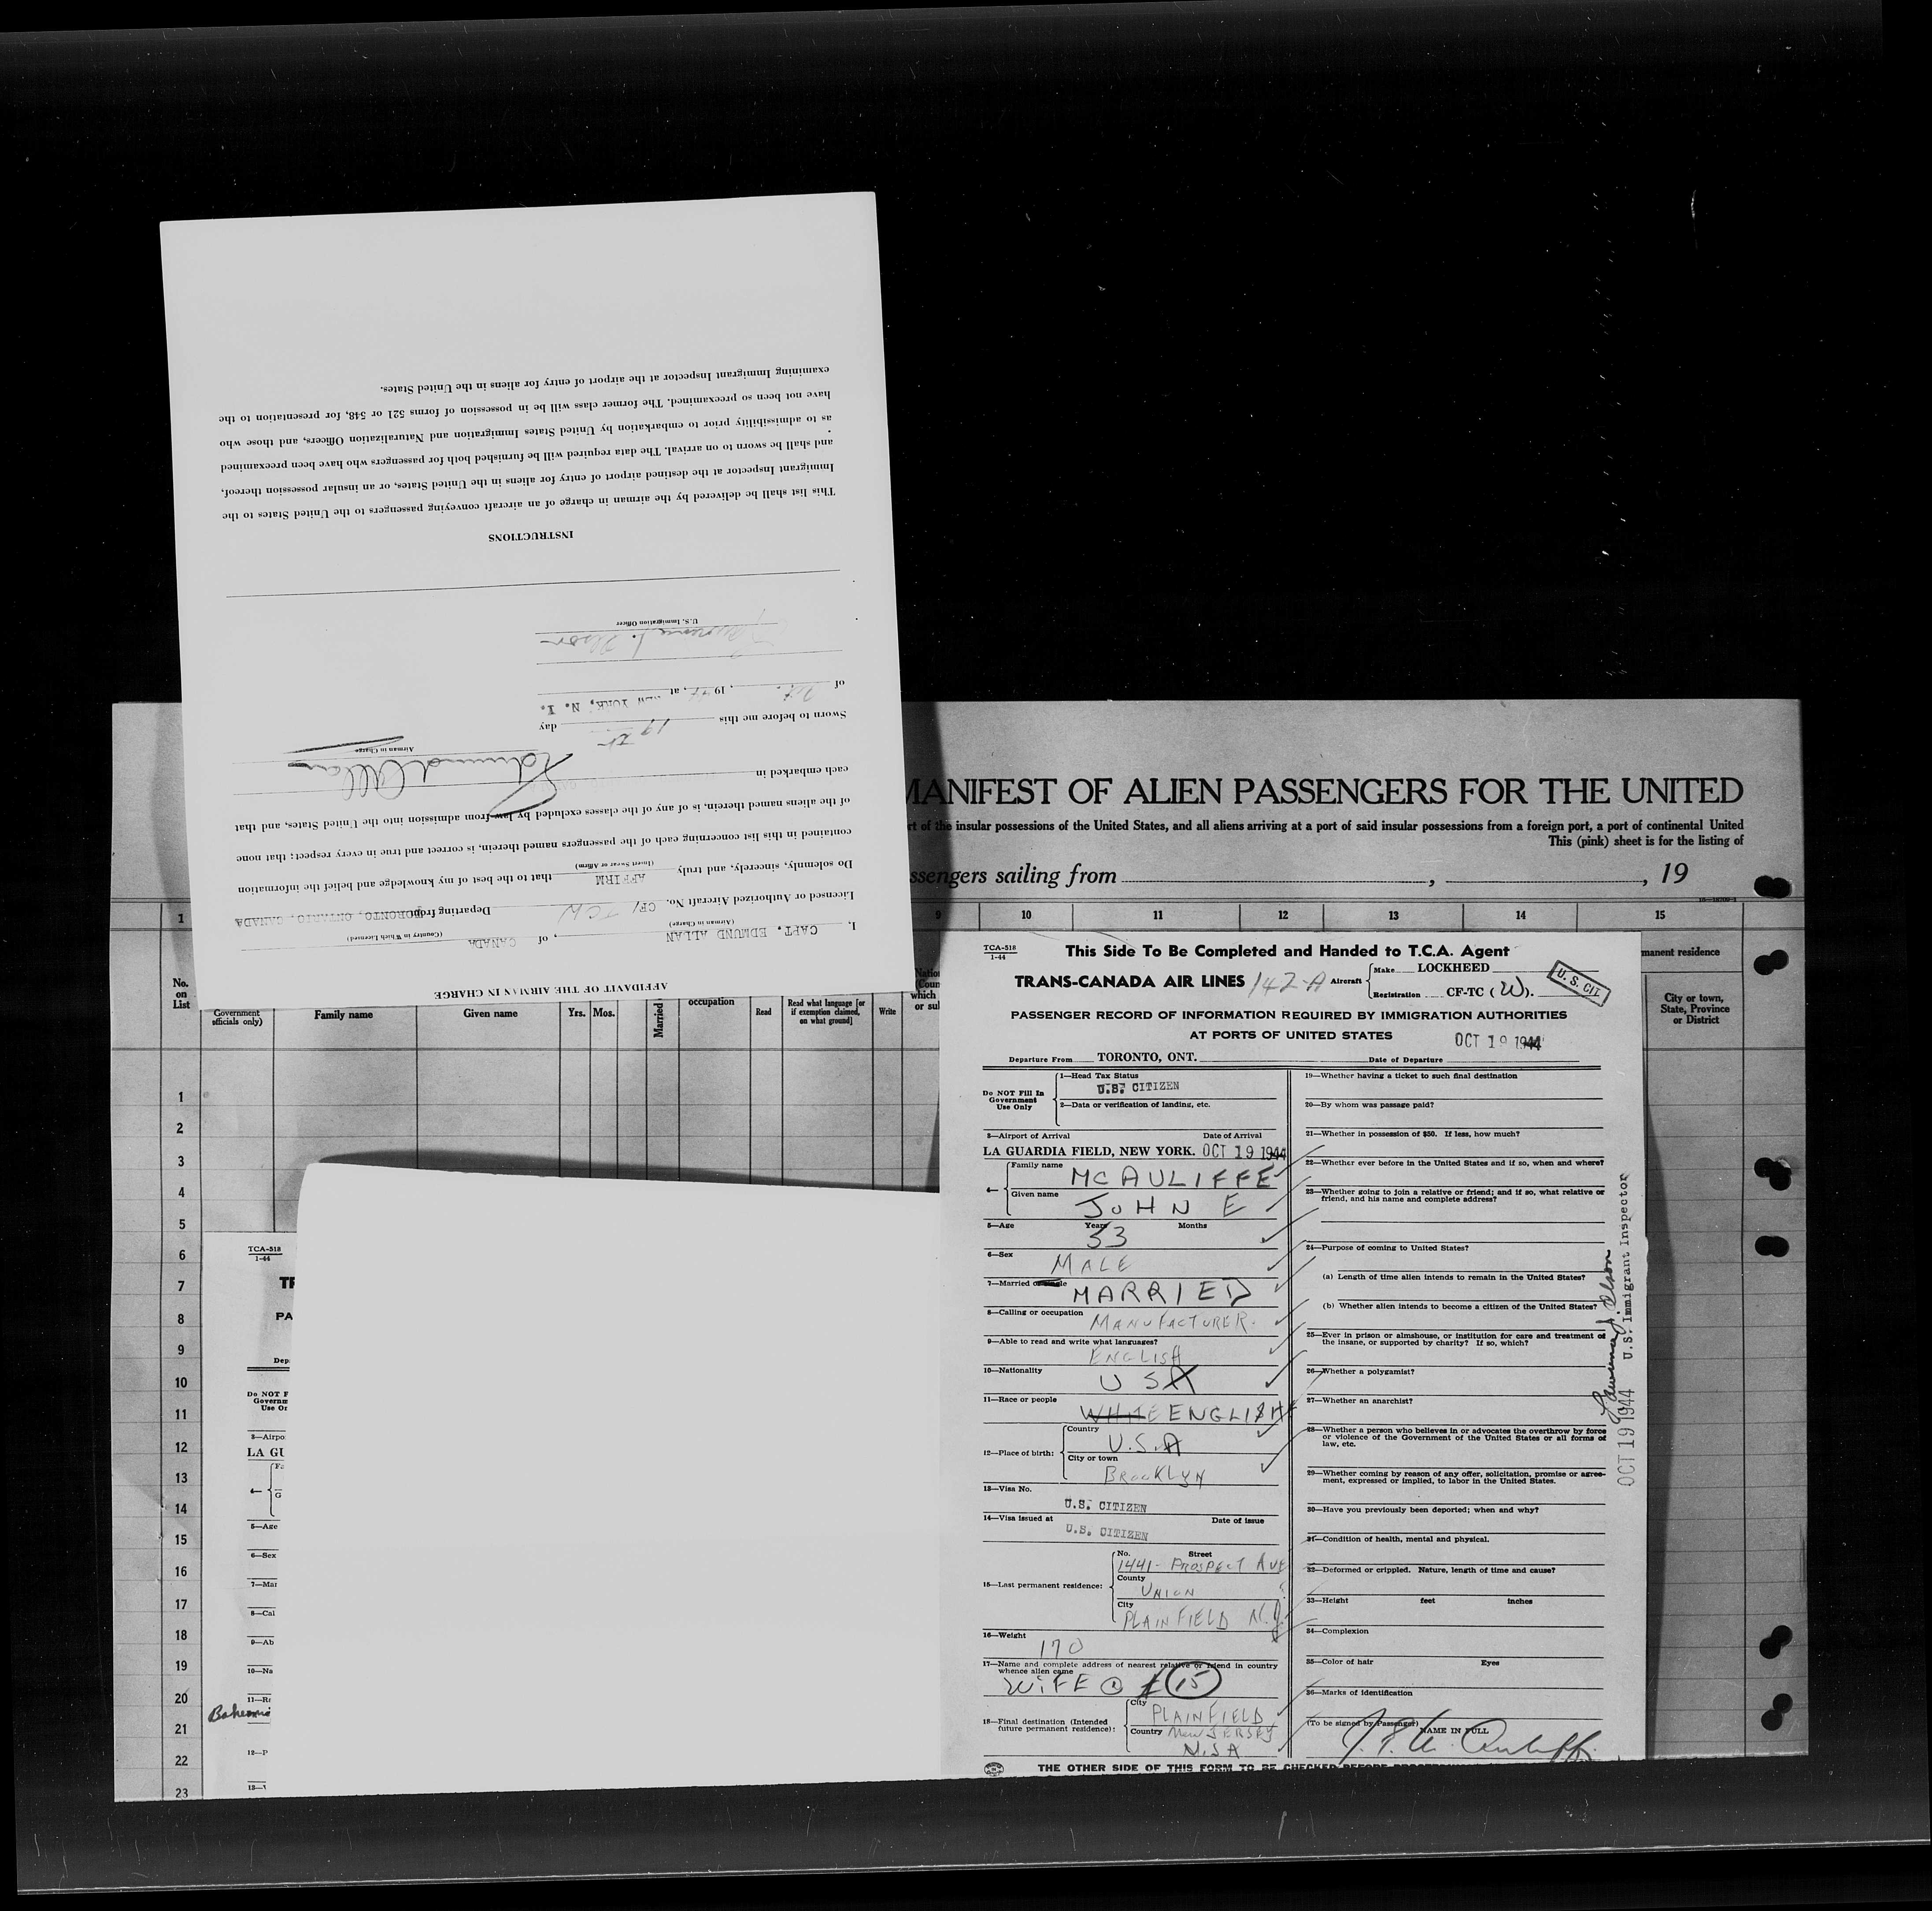 AFFIDAVIT OF THE AIRMAN IN CHARGE
I, CAPT. EDMUND ALLAN, of CANADA
(Airman in Charge) (Country in Which Licensed)
Licensed or Authorized Aircraft No. CF/ TCW Departing from TORONTO, ONTARIO, CANADA
Do solemnly, sincerely, and truly AFFIRM that to the best of my knowledge and belief the information
(Insert Swear or Affirm)
contained in this list concerning each of the passengers named therein, is correct and true in every respect; that none
of the aliens named therein, is of any of the classes excluded by law from admission into the United States, and that
each embarked in
Edmund Allan
Airman in Charge
Sworn to before me this 19th day
of Oct., 1944, at NEW YORK, N. Y.
Lawrence J. Olson
U.S. Immigration Officer
INSTRUCTIONS
This list shall be delivered by the airman in charge of an aircraft conveying passengers to the United States to the
Immigrant Inspector at the destined airport of entry for aliens in the United States, or an insular possession thereof,
and shall be sworn to on arrival. The data required will be furnished both for passengers who have been preexamined
as to admissibility prior to embarkation by United States Immigration and Naturalization Officers, and those who
have not been so preexamined. The former class will be in possession of forms 521 or 548, for presentation to the
examining Immigrant Inspector at the airport of entry for aliens in the United States.
MANIFEST OF ALIEN PASSENGERS FOR THE UNITED
rt of the insular possessions of the United States, and all aliens arriving at a port of said insular possessions from a foreign port, a port of continental United
This (pink) sheet is for the listing of
ssengers sailing from , , 19
1 9 10 11 12 13 14 15
No. on List
Government officials only)
Family name
Given name
Yrs. Mos.
Married
occupation
Read
Read what language [or if exemption claimed, on what ground]
Write
manent residence
City or town, State, Province or District
1
2
3
4
5
6
7
8
9
10
11
12
13
14
15
16
17
18
19
20
21
22
23
TCA-518
1-44
PA
Dep
Do NOT F
Governm
Use Or
3—Airpo
LA GU
4—
G
5—Age
6—Sex
7—Mar
8—Cal
9—Ab
10—Na
11—R
12—P
13—V
TCA-518
1-44
This Side To Be Completed and Handed to T.C.A. Agent
TRANS-CANADA AIR LINES 142-A Aircraft Make LOCKHEED
Registration CF-TC (W).
U.S. CIT
PASSENGER RECORD OF INFORMATION REQUIRED BY IMMIGRATION AUTHORITIES
AT PORTS OF UNITED STATES
OCT 19 1944
Departure From TORONTO, ONT. Date of Departure
Do NOT Fill In Government Use Only
1—Head Tax Status
U.S. CITIZEN
2—Data or verification of landing, etc.
3—Airport of Arrival Date of Arrival
LA GUARDIA FIELD, NEW YORK. OCT 19 1944
4— Family name MCAULIFFE
Given name JOHN E
5—Age Years 53 Months
6—Sex MALE
7—Married or single MARRIED
8—Calling or occupation MANUFACTURER.
9—Able to read and write what languages?
ENGLISH
10—Nationality USA
11—Race or people WHITE ENGLISH
12—Place of birth: Country U.S.A
City or town BROOKLYN
13—Visa No.
U.S. CITIZEN
14—Visa issued at Date of issue
U.S. CITIZEN
15—Last permanent residence: No. Street
1441- PROSPECT AVE
County UNION
City PLAINFIELD N.J.
16—Weight 170
17—Name and complete address of nearest relative or friend in country
whence alien came
WIFE @ 15
18—Final destination (Intended future permanent residence): City PLAINFIELD
Country New JERSEY
U.S.A
19—Whether having a ticket to such final destination
20—By whom was passage paid?
21—Whether in possession of $50. If less, how much?
22—Whether ever before in the United States and if so, when and where?
23—Whether going to join a relative or friend; and if so, what relative or
friend, and his name and complete address?
24—Purpose of coming to United States?
(a) Length of time alien intends to remain in the United States?
(b) Whether alien intends to become a citizen of the United States?
25—Ever in prison or almshouse, or institution for care and treatment of
the insane, or supported by charity? If so, which?
26—Whether a polygamist?
27—Whether an anarchist?
28—Whether a person who believes in or advocates the overthrow by force
or violence of the Government of the United States or all forms of
law, etc.
29—Whether coming by reason of any offer, solicitation, promise or agree-
ment, expressed or implied, to labor in the United States.
30—Have you previously been deported; when and why?
31—Condition of health, mental and physical.
32—Deformed or crippled. Nature, length of time and cause?
33—Height feet inches
34—Complexion
35—Color of hair Eyes
36—Marks of identification
(To be signed by Passenger) NAME IN FULL
J. E. Mc Auliffe
THE OTHER SIDE OF THIS FORM TO BE CHECKED BEFORE
Lawrence J. Olson
OCT 19 1944 U.S. Immigrant Inspector